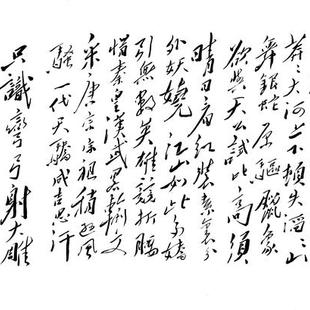 莽々大河上下頓失滔々山
舞銀蛇原驅臘象
欲與天公試比高須
晴日看紅裝素裹分
外妖嬈江山如此多嬌
引無數英雄競折腰
惜秦皇漢武畧輸文
采唐宗宋祖稍遜風
騷一代天驕成吉思汗
只識彎弓射大雕